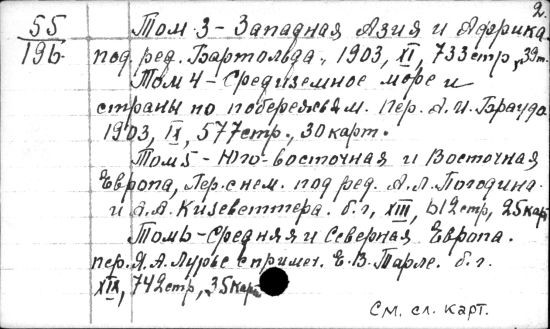 2.
55
19б.
Том 3 - Западная Азия и Африка.
под ред. Бартольда, 1903, XI, 733стр, 39т.
Том 4 - Средиземное море и
страны по побережьям. Пер. А.И. Брауда
1903, IX, 577стр., 30карт.
Том 5 - Юго-Восточная и Восточная
Европа, Пер. с нем. под ред. А.Л. Погодина
и А.А. Кизеветтера. б.г, XIII, 612стр, 25карт
Том 6 - Средняя и Северная Европа.
пер. Я.А. Лурье с примеч. Е.В. Тарле. б.г.
XIX, 742стр, 35карт
См. сл. карт.